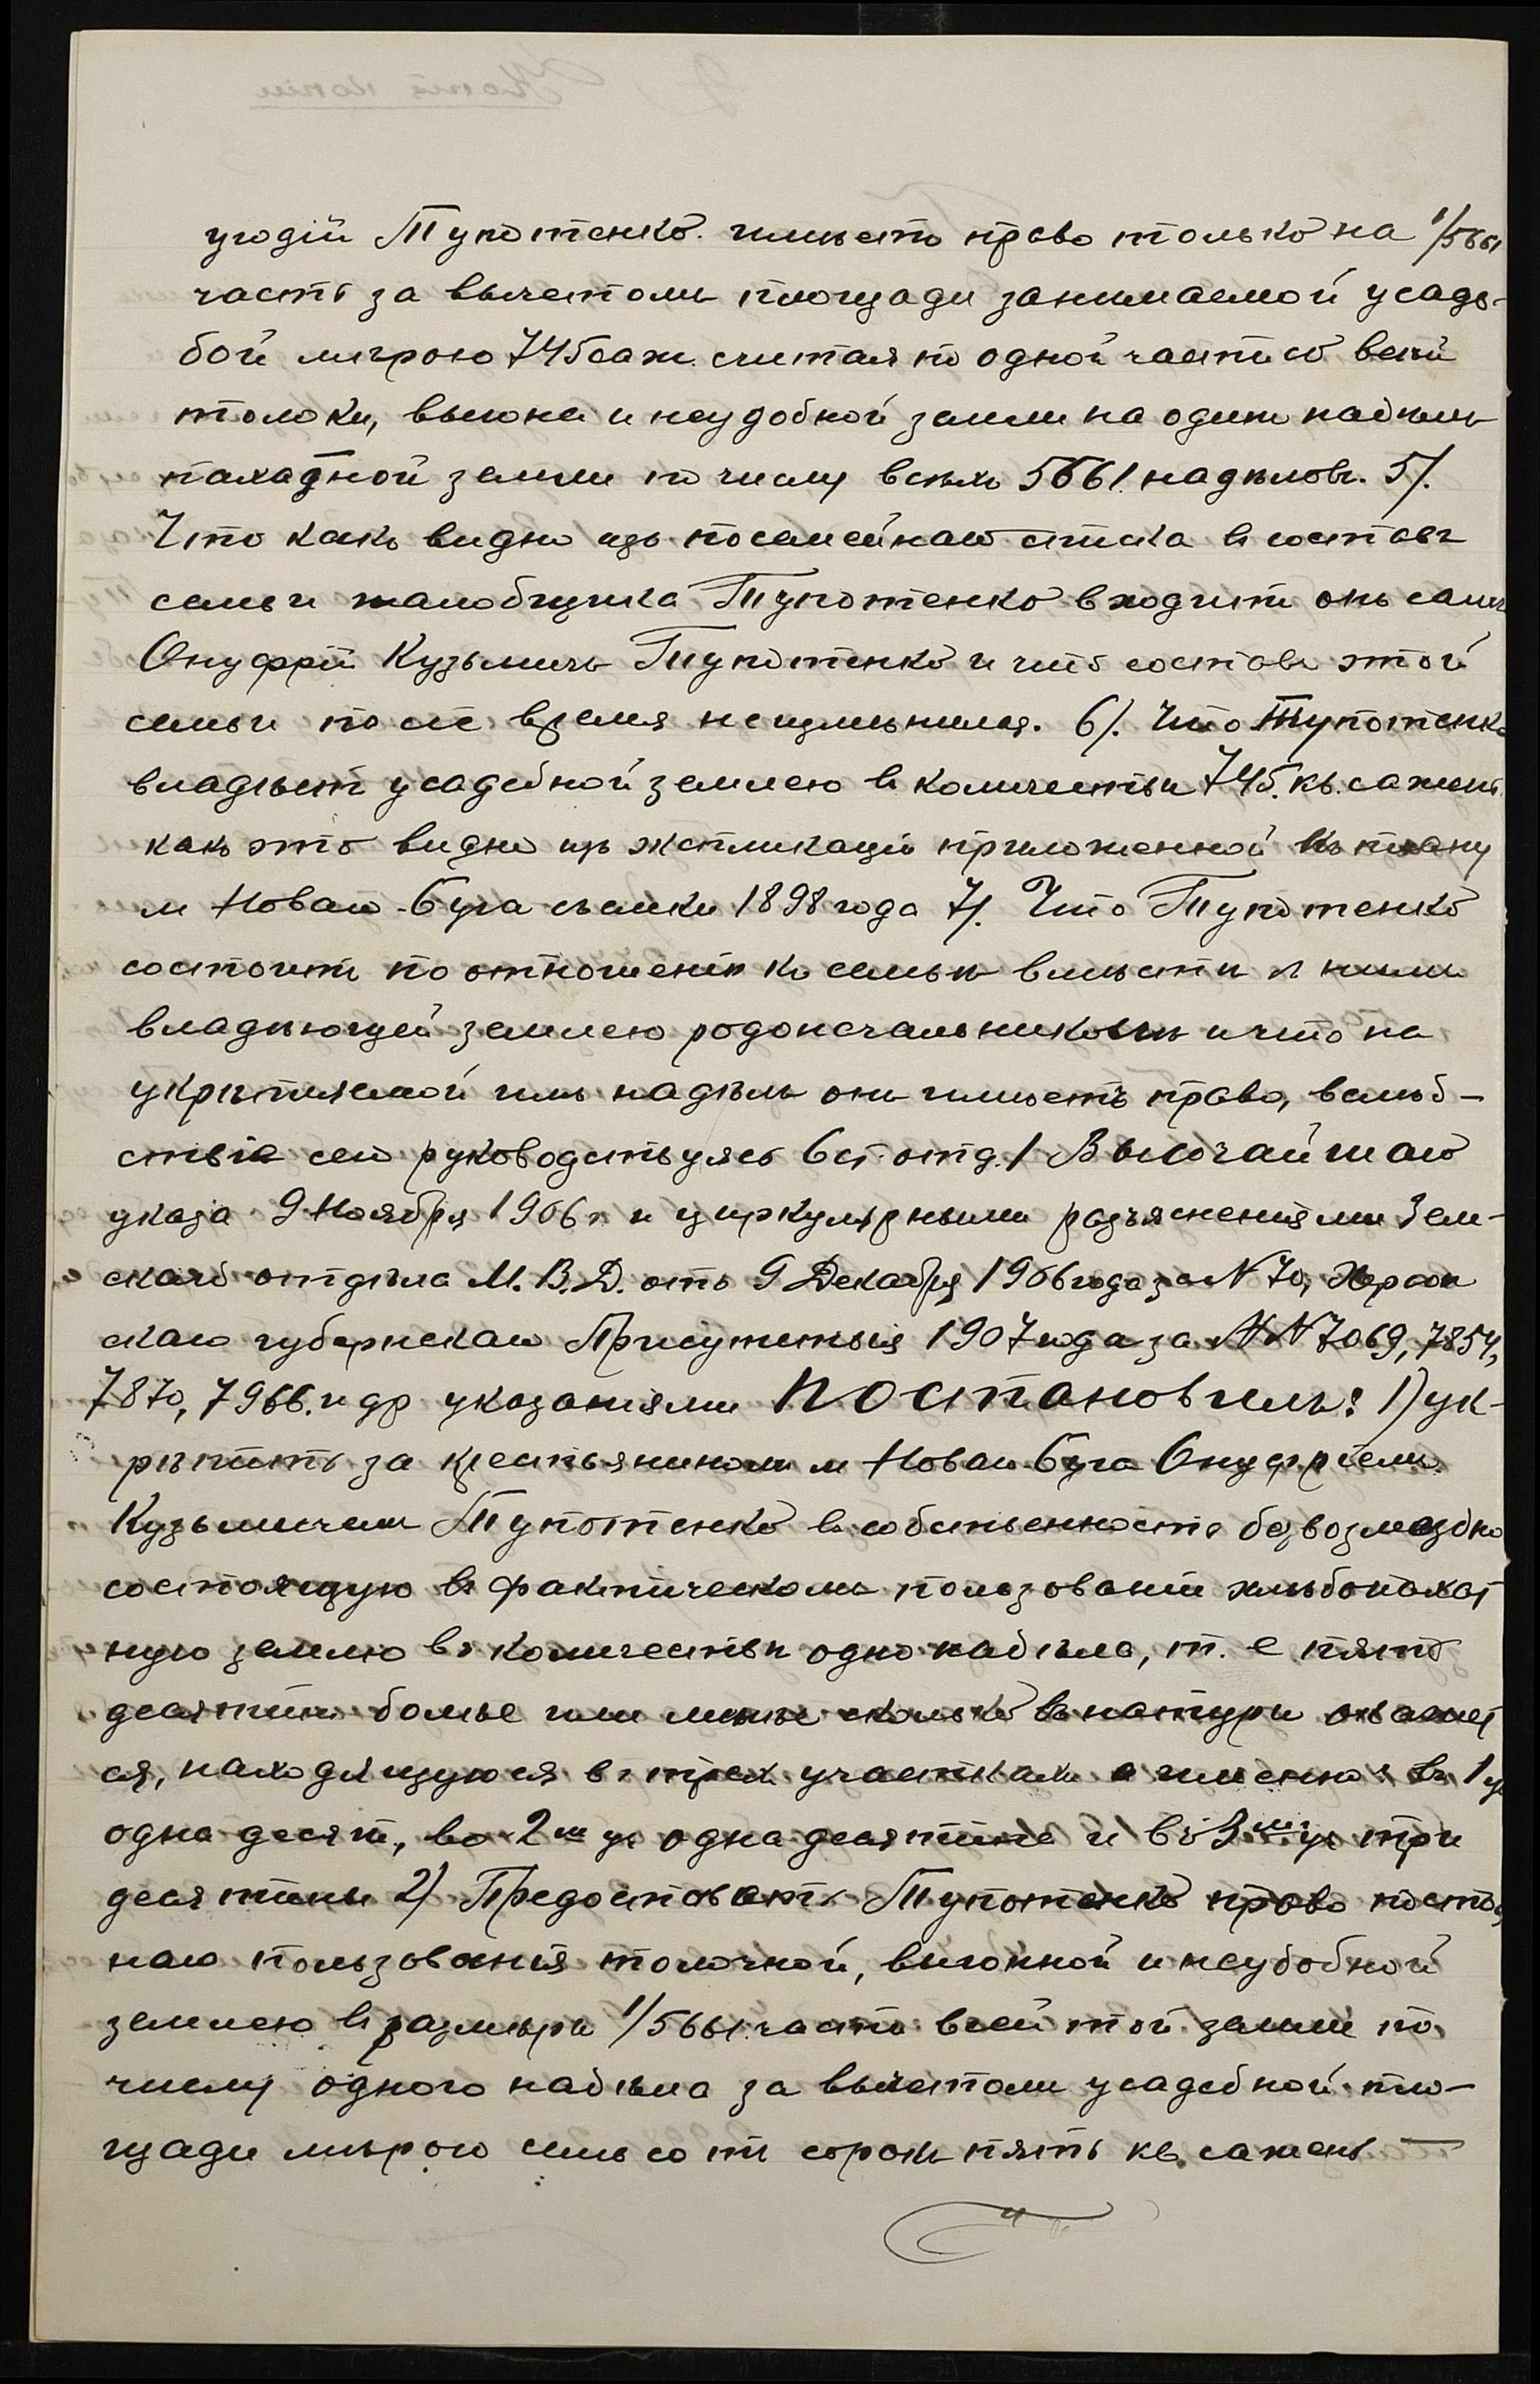 угодій Тупотенко имѣетъ право только на 1/5661
часть за вычетомъ площади занимаемой усадь-
бой мѣрою 745 саж. считая по одной части со всей
толоки, выгона и неудобной земли на одинъ надѣлъ
пахатной земли по числу всѣхъ 5661 надѣловъ. 5/.
Что какъ видно изъ посемейнаго списка въ составъ
семьи жалобщика Тупотенко входитъ онъ самъ
Онуфрій Кузьмичъ Тупотенко и что составъ этой
семьи по сіе время не измѣнился. 6/. Что Тупотенко
владѣетъ усадебной землею въ количествѣ 745 кв. сажень
какъ это видно изъ экспликаціи приложенной къ плану
м Новаго-Буга съемки 1898 года 7/. Что Тупотенко
состоитъ по отношенію къ семьѣ вмѣстѣ съ нимъ
владѣющей землею родоначальникомъ и что на
укрѣпляемой имъ надѣлъ онъ имѣетъ право, вслѣд-
ствіе сего руководствуясь 6 ст. отд. 1 Высочайшаго
указа 9 Ноября 1906 г. и циркулярными разъясненіями Зем-
скаго отдѣла М.В.Д. отъ 9 Декабря 1906 года за N 70, Херсон
скаго губернскаго Присутствія 1907 года за NN 7069, 7854,
7870, 7966. и др указаніями постановилъ: 1) ук-
рѣпить за крестьяниномъ м Новаго-Буга Онуфріемъ
Кузьмичемъ Тупотенко въ собственность безвозмездно
состоящую въ фактическомъ пользованіи хлѣбопахат
ную землю въ количествѣ одно надѣла, т. е пять
десятинъ болѣе или менѣе сколько въ натурѣ окажет
ся, находящуюся въ трехъ участкахъ а именно: въ 1 уч
одна десят., во 2мъ уч одна десятина и въ 3мъ уч три
десятины 2) Предоставить Тупотенко право постоя
наго пользованія толочной, выгонной и неудобной
землею въ размѣрѣ 1/5661 части всей той земли по
числу одного надѣла за вычетомъ усадебной пло-
щади мѣрою семьсотъ сорокъ пять кв. сажень —